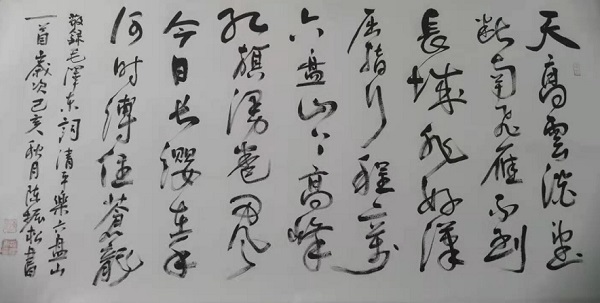 天高雲淡望
断南飞雁不到
長城非好漢
屈指行程二萬
六盘山上高峰
红旗漫卷西風
今日长缨在手
何时縛住蒼龍
敬録毛澤东詞清平樂六盘山
一首歲次己亥秋月陈振松書